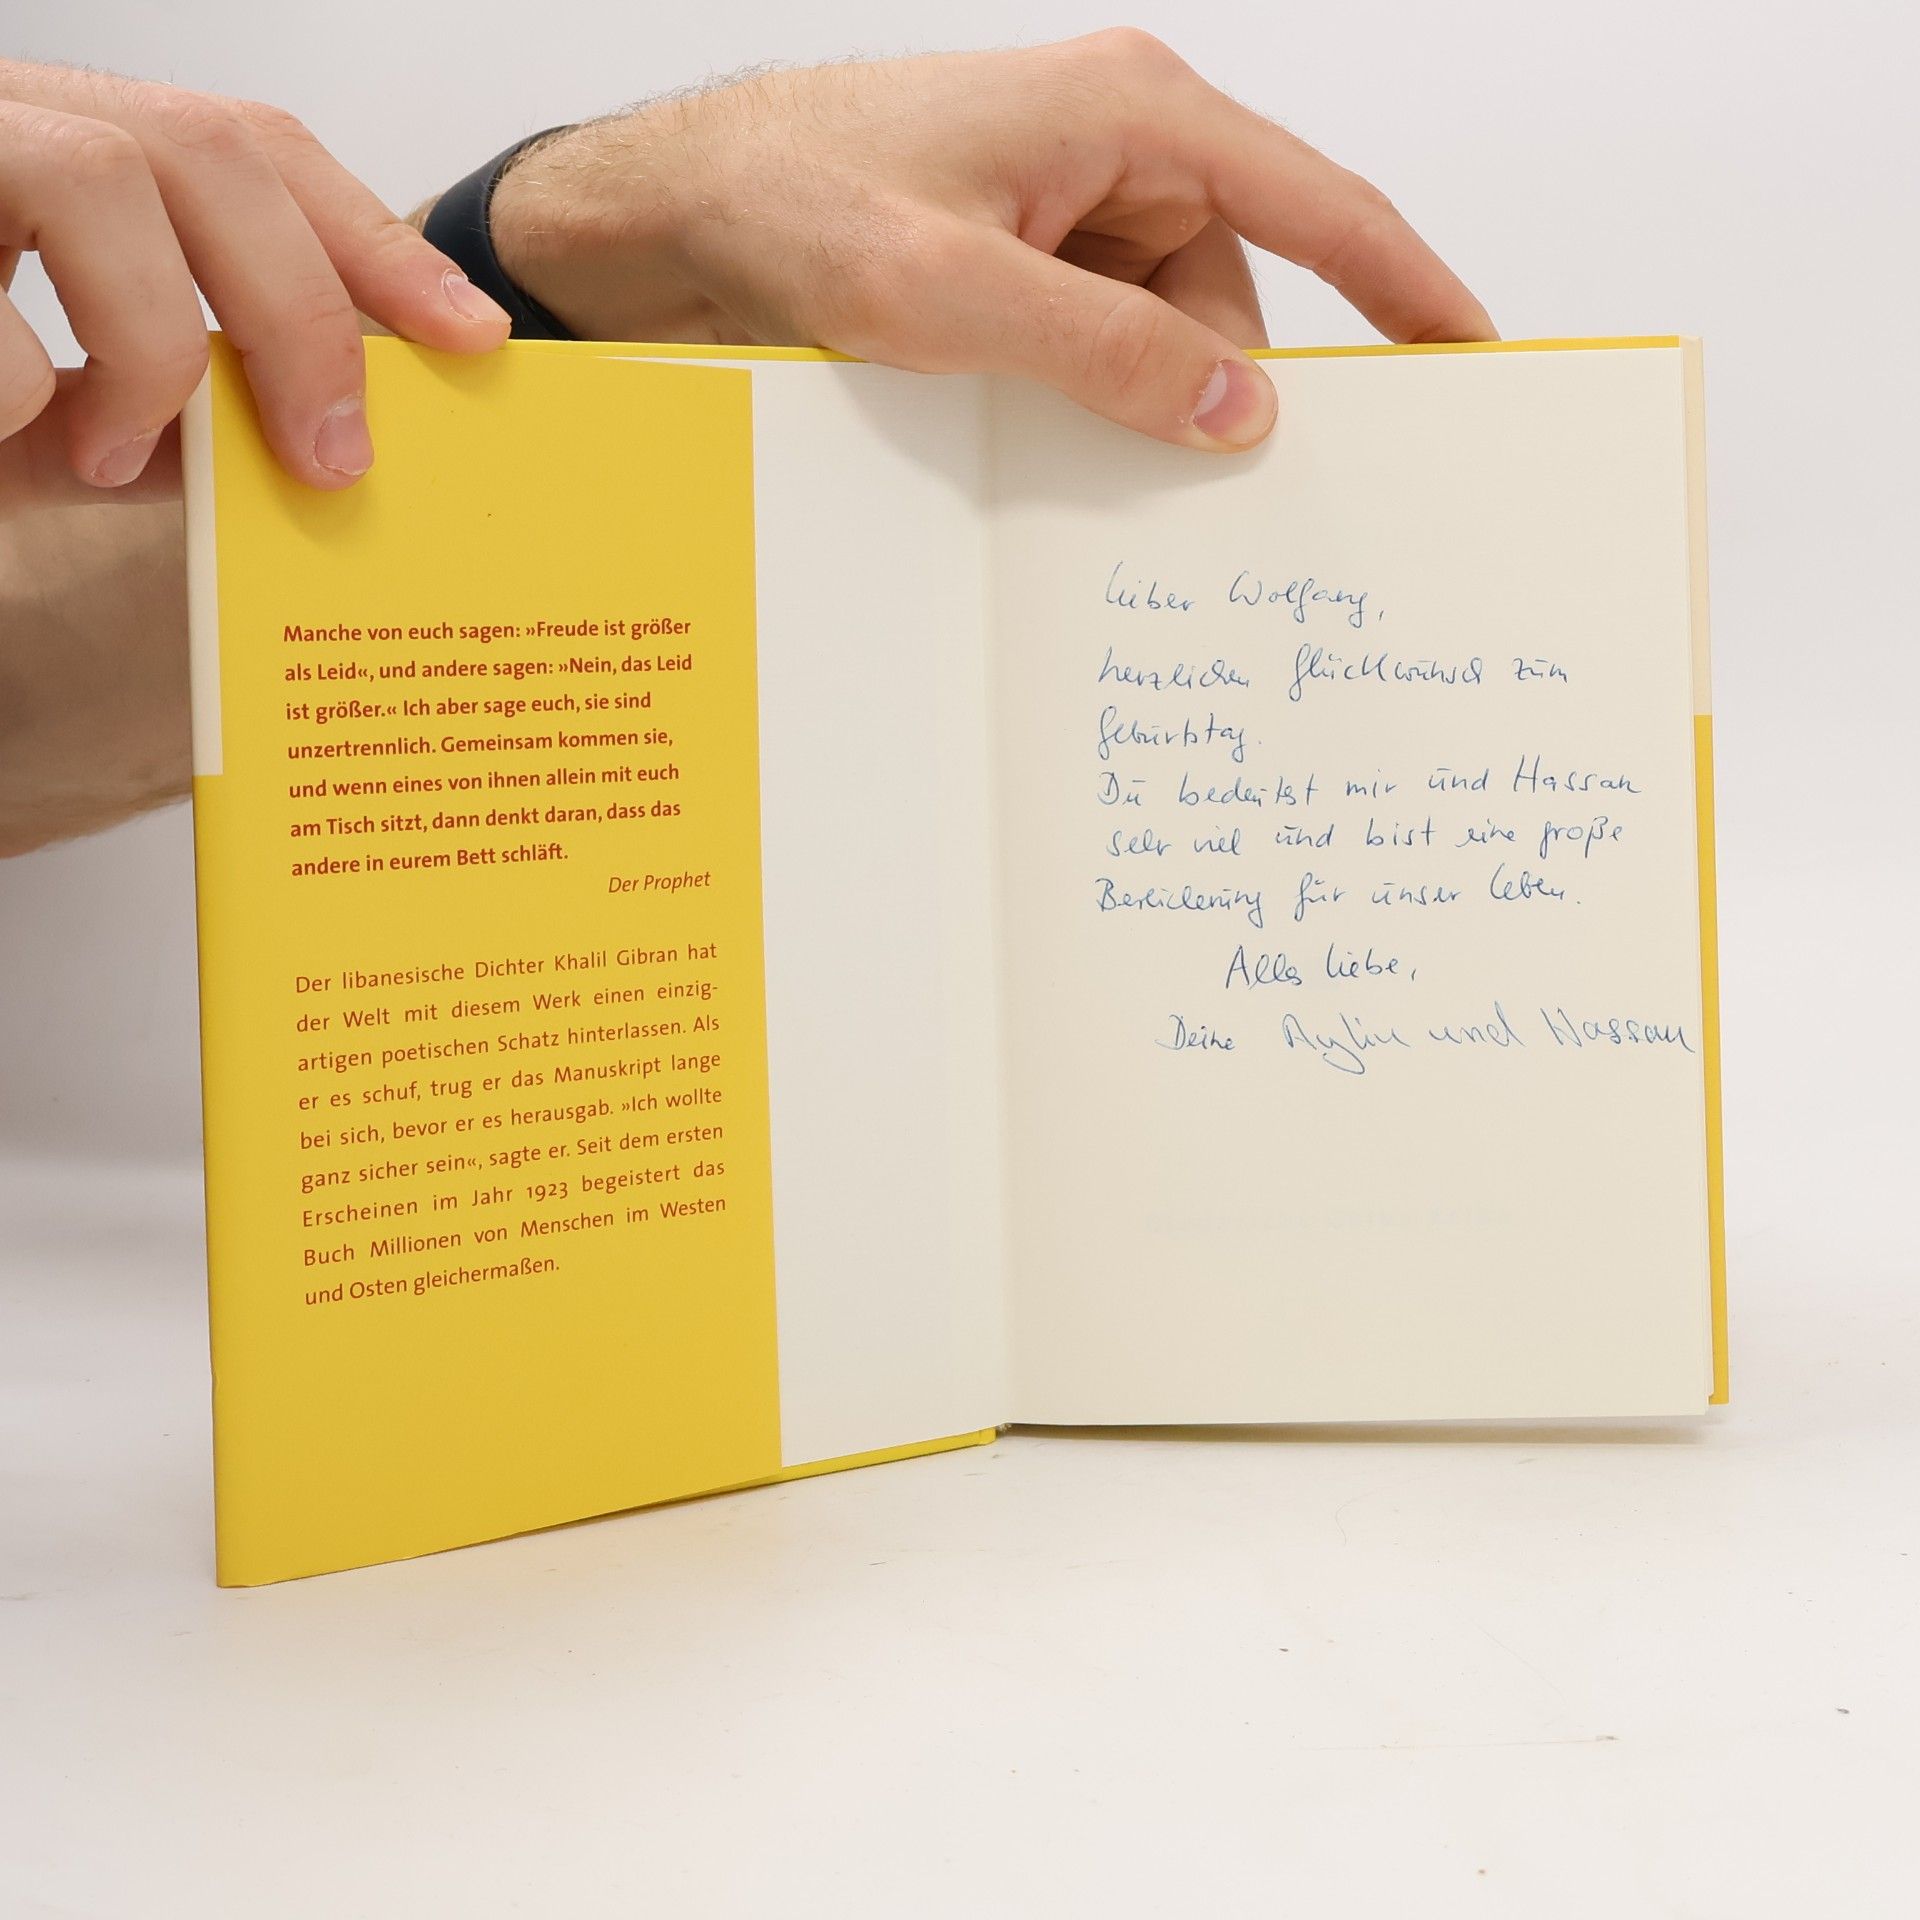 Manche von euch sagen: »Freude ist größer
als Leid«, und andere sagen: »Nein, das Leid
ist größer.« Ich aber sage euch, sie sind
unzertrennlich. Gemeinsam kommen sie,
und wenn eines von ihnen allein mit euch
am Tisch sitzt, dann denkt daran, dass das
andere in eurem Bett schläft.
Der Prophet
Der libanesische Dichter Khalil Gibran hat
der Welt mit diesem Werk einen einzig-
artigen poetischen Schatz hinterlassen. Als
er es schuf, trug er das Manuskript lange
bei sich, bevor er es herausgab. »Ich wollte
ganz sicher sein«, sagte er. Seit dem ersten
Erscheinen im Jahr 1923 begeistert das
Buch Millionen von Menschen im Westen
und Osten gleichermaßen.
Lieber Wolfgang,
herzlichen Glückwunsch zum
Geburtstag.
Du bedeutest mir und Hassan
sehr viel und bist eine große
Bereicherung für unser Leben.
Alles Liebe,
Deine Aylin und Hassan